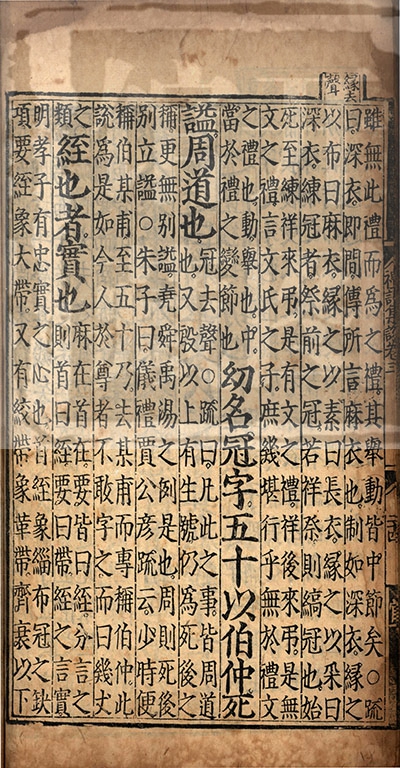 緣去
聲
雖無此禮而為之禮其舉動皆中節矣○䟽
曰深衣即間傳所言麻衣也制如深衣緣之
以布曰麻衣緣之以素曰長衣緣之以采曰
深衣練冠者祭前之冠若祥祭則縞冠也始
死至練祥來弔是有文之禮祥後來弔是無
文之禮言文氏之子庶幾堪行乎無於禮文
之禮也動舉也中
當於禮之變節也
幼名冠字五十以伯仲死
謚周道也
冠去聲○䟽曰凡此之事皆周道
也又殷以上有生號仍為死後之
稱更無別謚堯舜禹湯之例是也周則死後
別立謚○朱子曰儀禮賈公彥䟽云少時便
稱伯某甫至五十乃去某甫而專稱伯仲此
說為是如今人於尊者不敢字之而曰幾丈
之
類
絰也者實也
麻在首在要皆曰絰分言之
則首曰絰要曰帶絰之言實
明孝子有忠實之心也首絰象緇布冠之缺
項要絰象大帶又有絞帶象革帶齊衰以下